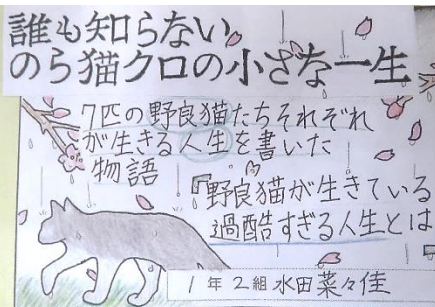 誰も知らない
のら猫クロの小さな一生
7匹の野良猫たちそれぞれ
が生きる人生を書いた
物語
『野良猫が生きている
過酷すぎる人生とは』
1年2組 水田菜々佳